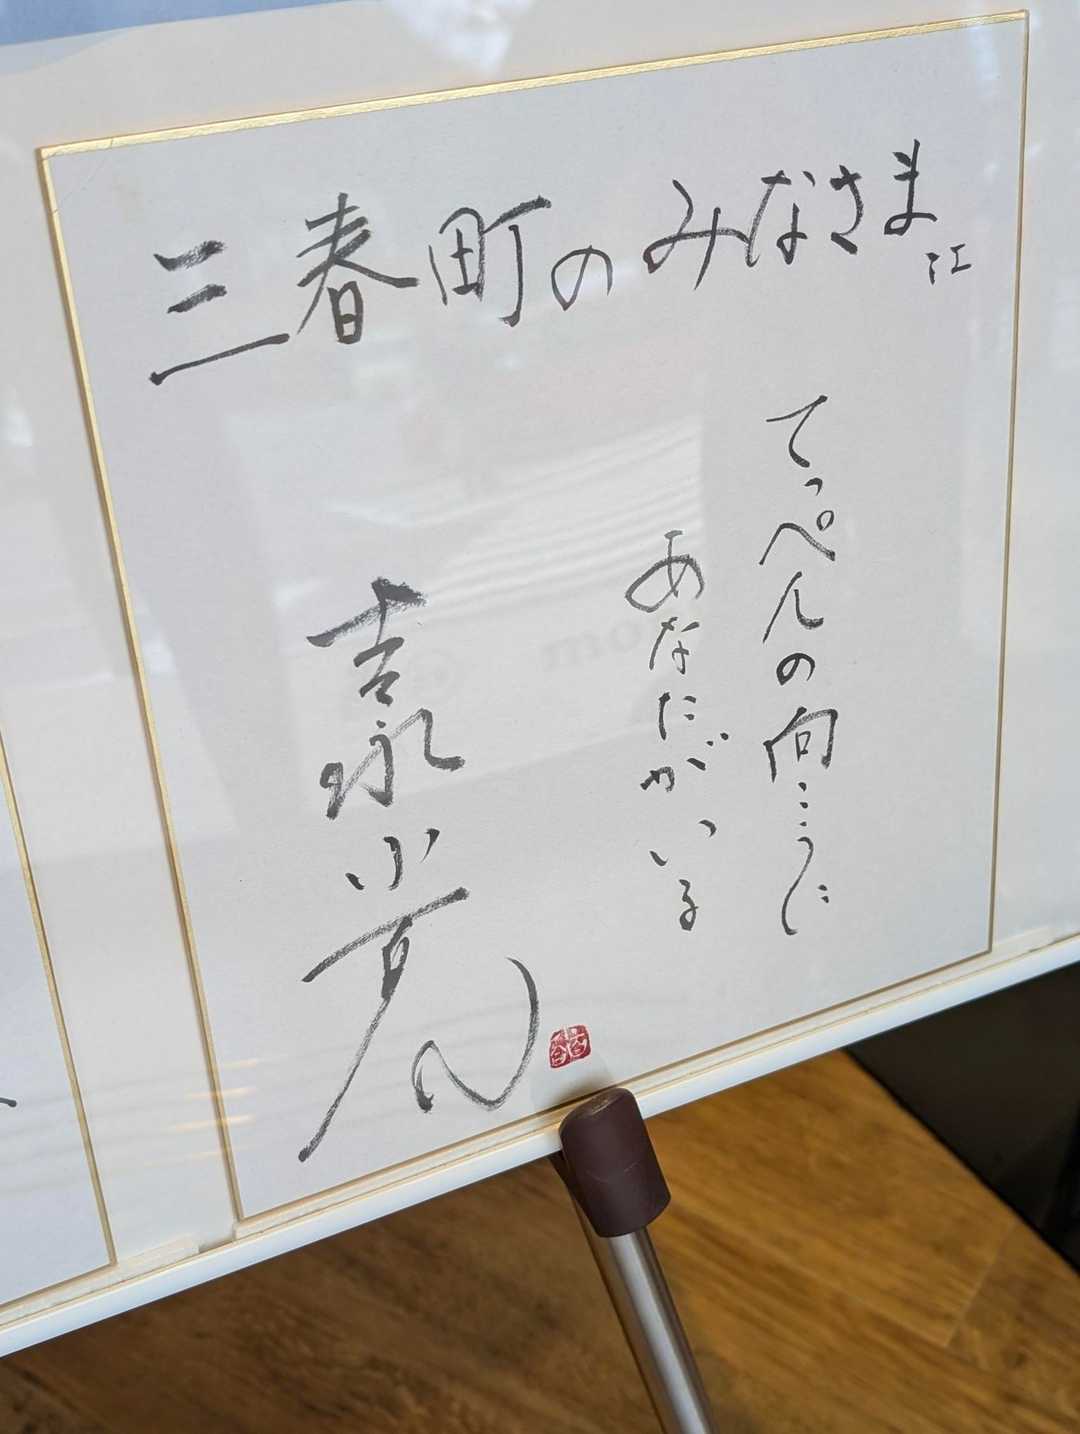 三春町のみなさま江
てっぺんの向こうに
あなたがいる
吉永小百合